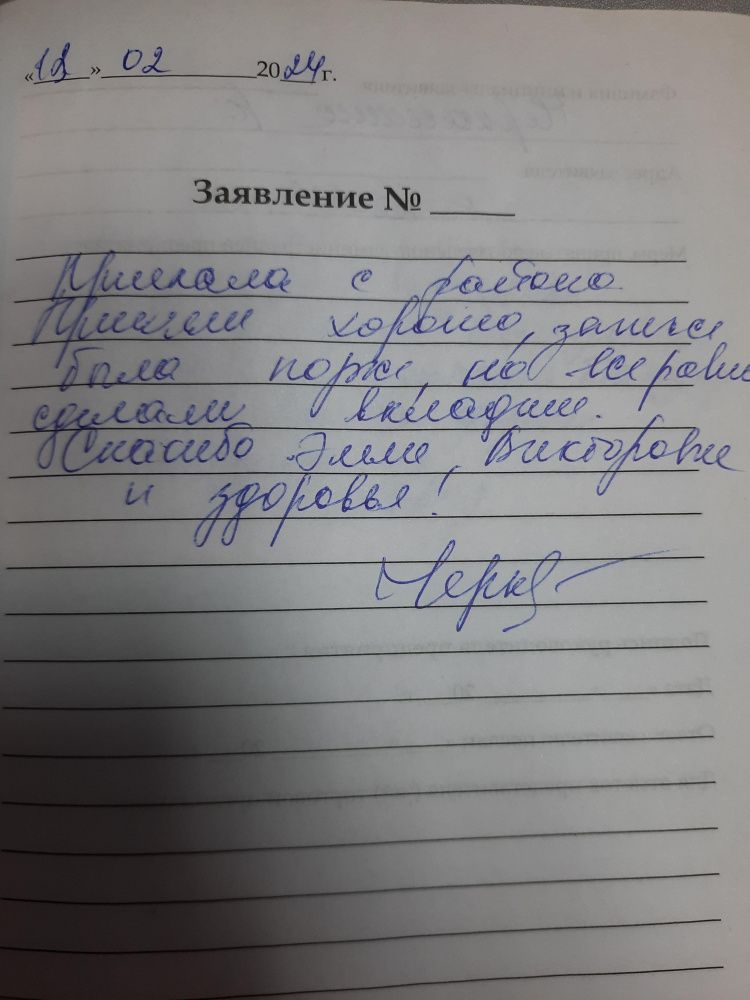 «12» 02 2024 г.
Заявление №
Приехала с района.
Приняли хорошо, запись
была позже, но все равно
сделали вкладки.
Спасибо Элле Викторовне
и здоровья!